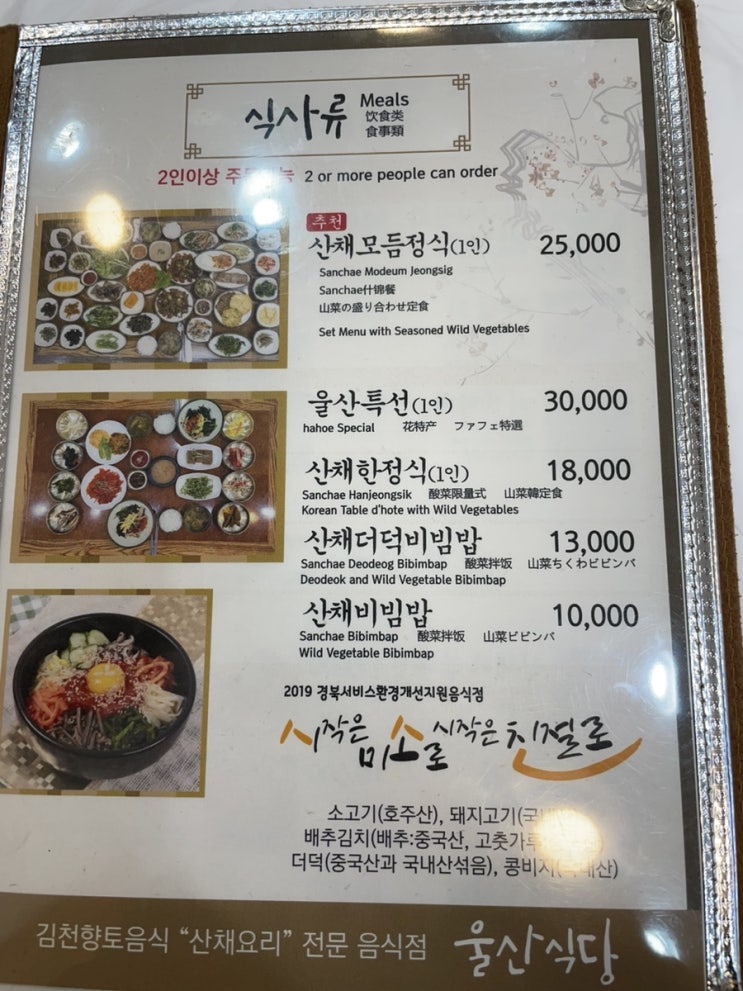 식사류 Meals
饮食类
食事類
2인이상 2 or more people can order
추천
산채모듬정식(1인) 25,000
Sanchae Modeum Jeongsig
Sanchae什锦餐
山菜の盛り合わせ定食
Set Menu with Seasoned Wild Vegetables
울산특선(1인) 30,000
hahoe Special 花特产 ファフェ特選
산채한정식(1인) 18,000
Sanchae Hanjeongsik 酸菜限量式 山菜韓定食
Korean Table d'hote with Wild Vegetables
산채더덕비빔밥 13,000
Sanchae Deodeog Bibimbap 酸菜拌饭 山菜ちくわビビンバ
Deodeok and Wild Vegetable Bibimbap
산채비빔밥 10,000
Sanchae Bibimbap 酸菜拌饭 山菜ビビンバ
Wild Vegetable Bibimbap
2019 경북서비스환경개선지원음식점
시작은 미소로 시작은 친절로
소고기(호주산), 돼지고기
배추김치(배추:중국산,
더덕(중국산과 국내산섞음), 콩비지
김천향토음식 “산채요리” 전문 음식점 울산식당